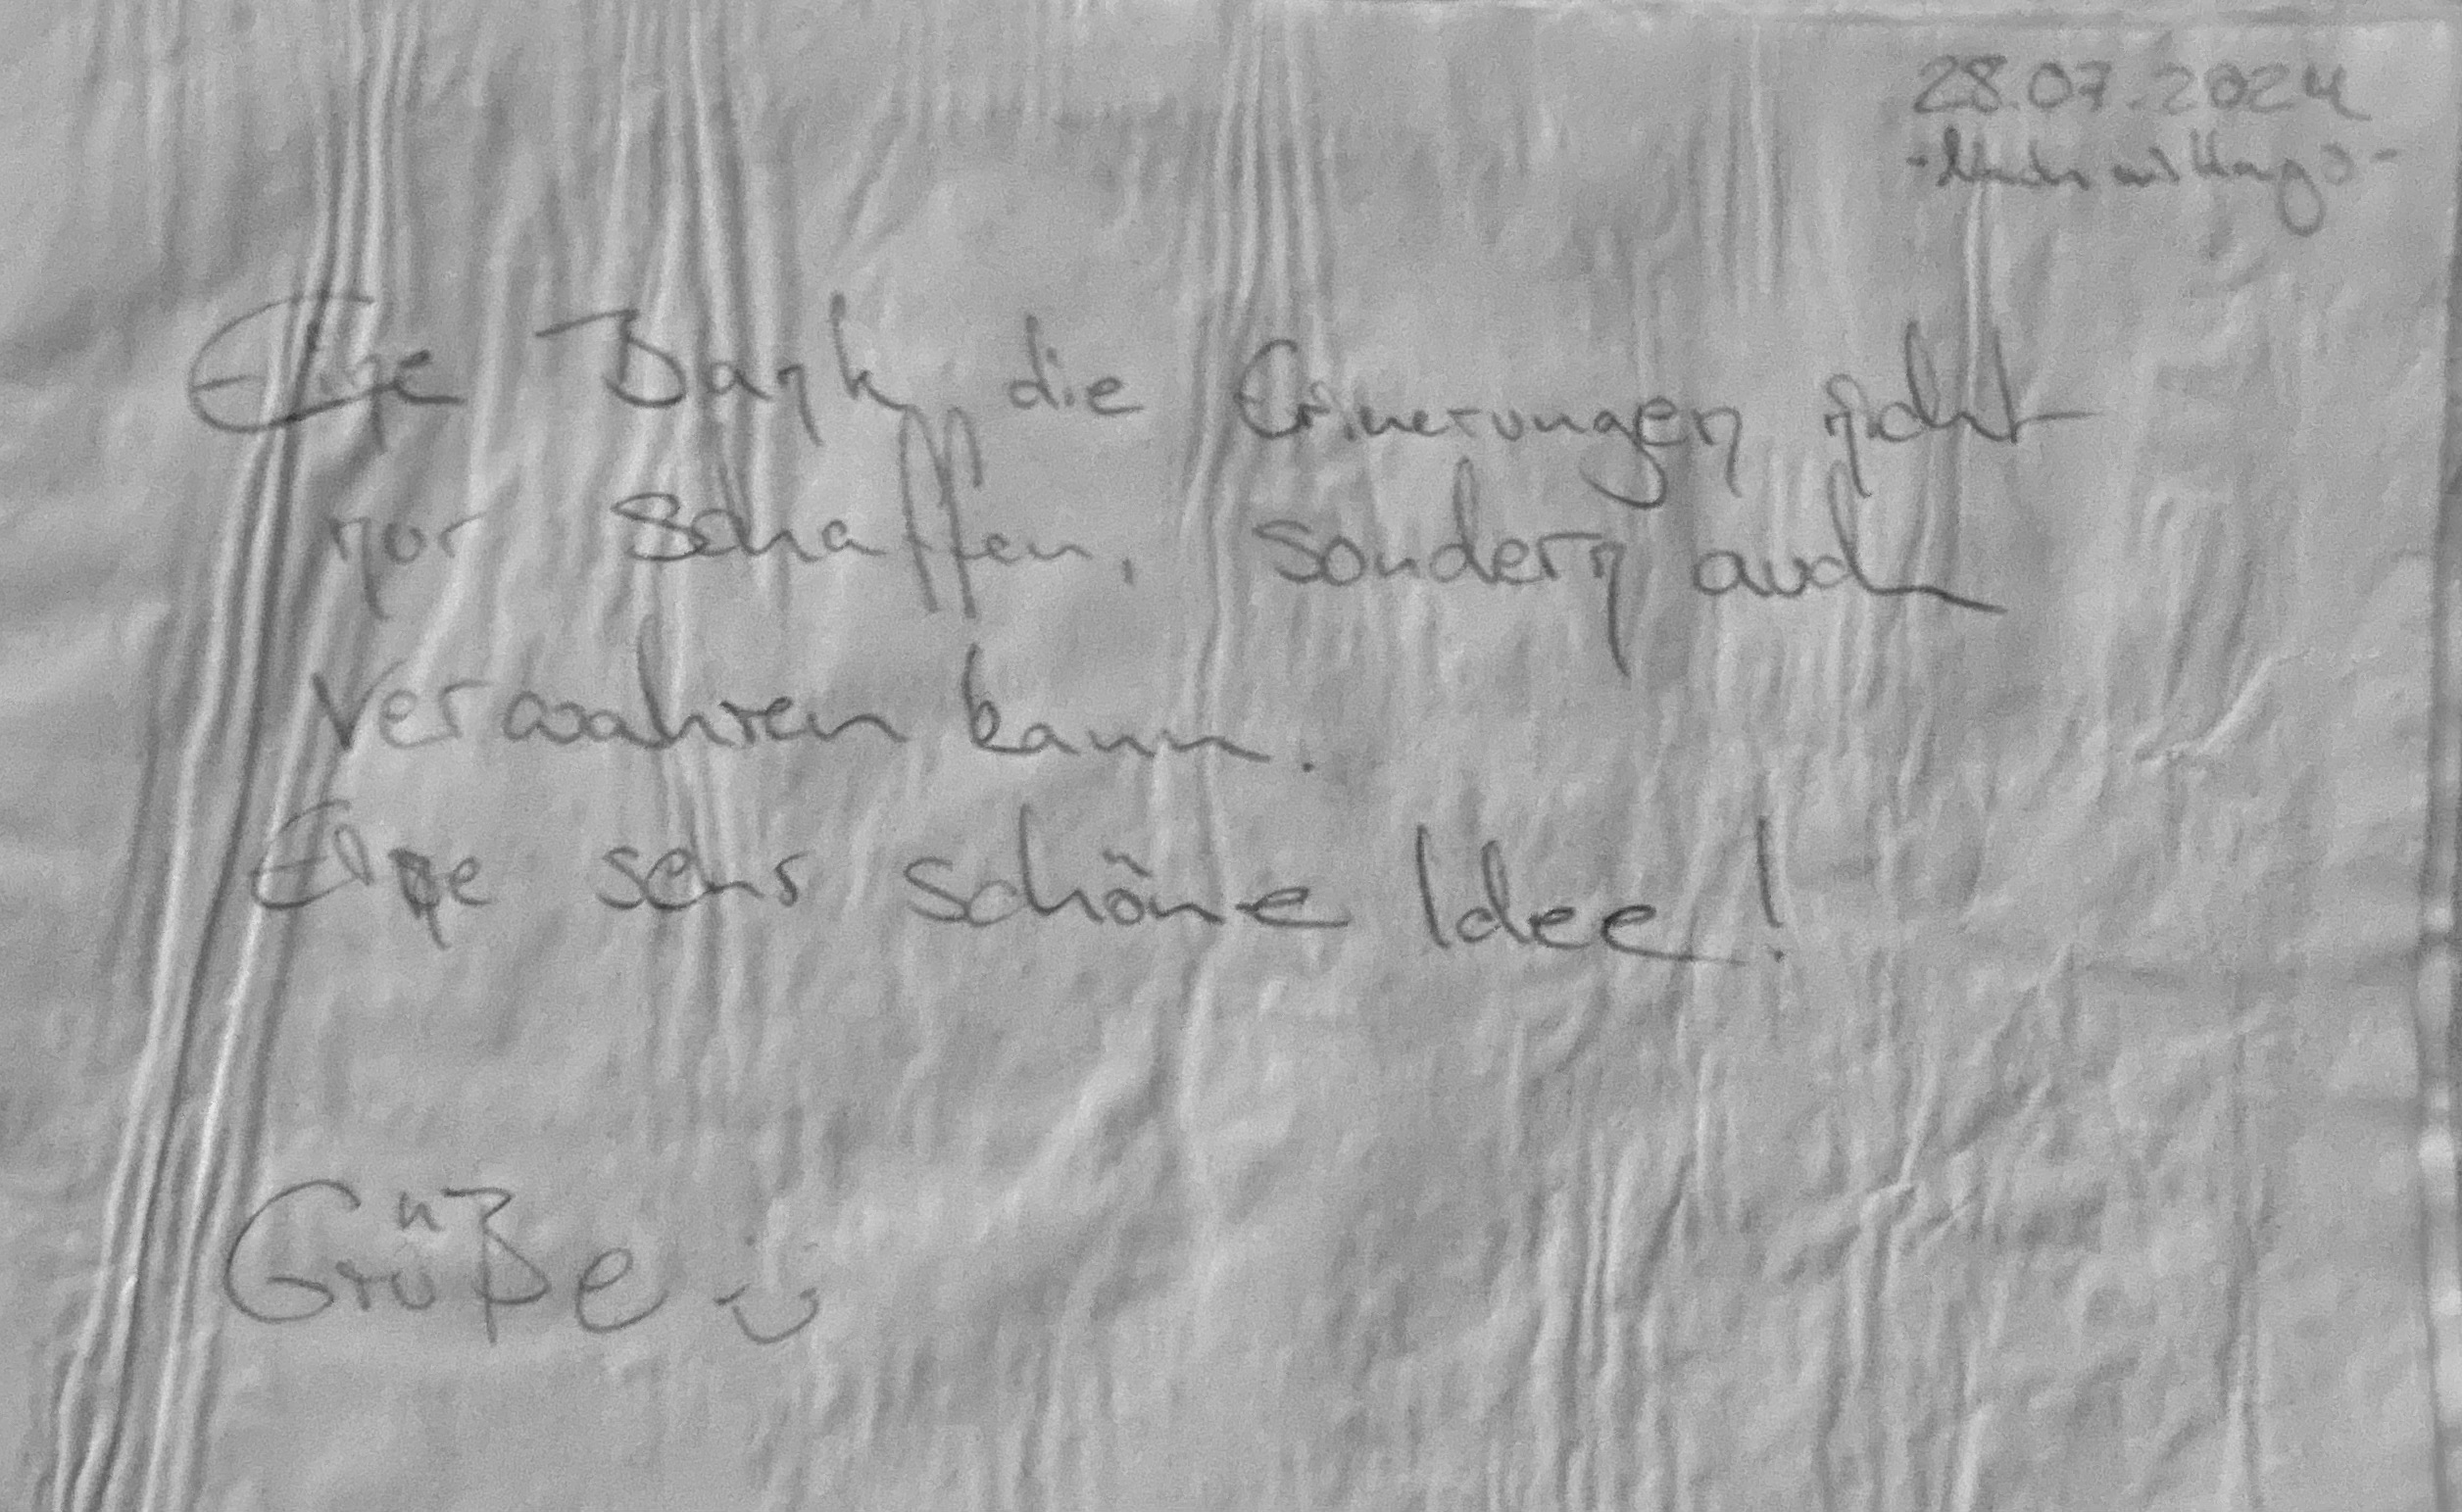 28.07.2024
-Nachmittags-
Eine Bank die Erinerungen nicht
nur schaffen, sondern auch
verwahren kann.
Eine sehr schöne Idee!
Grüße